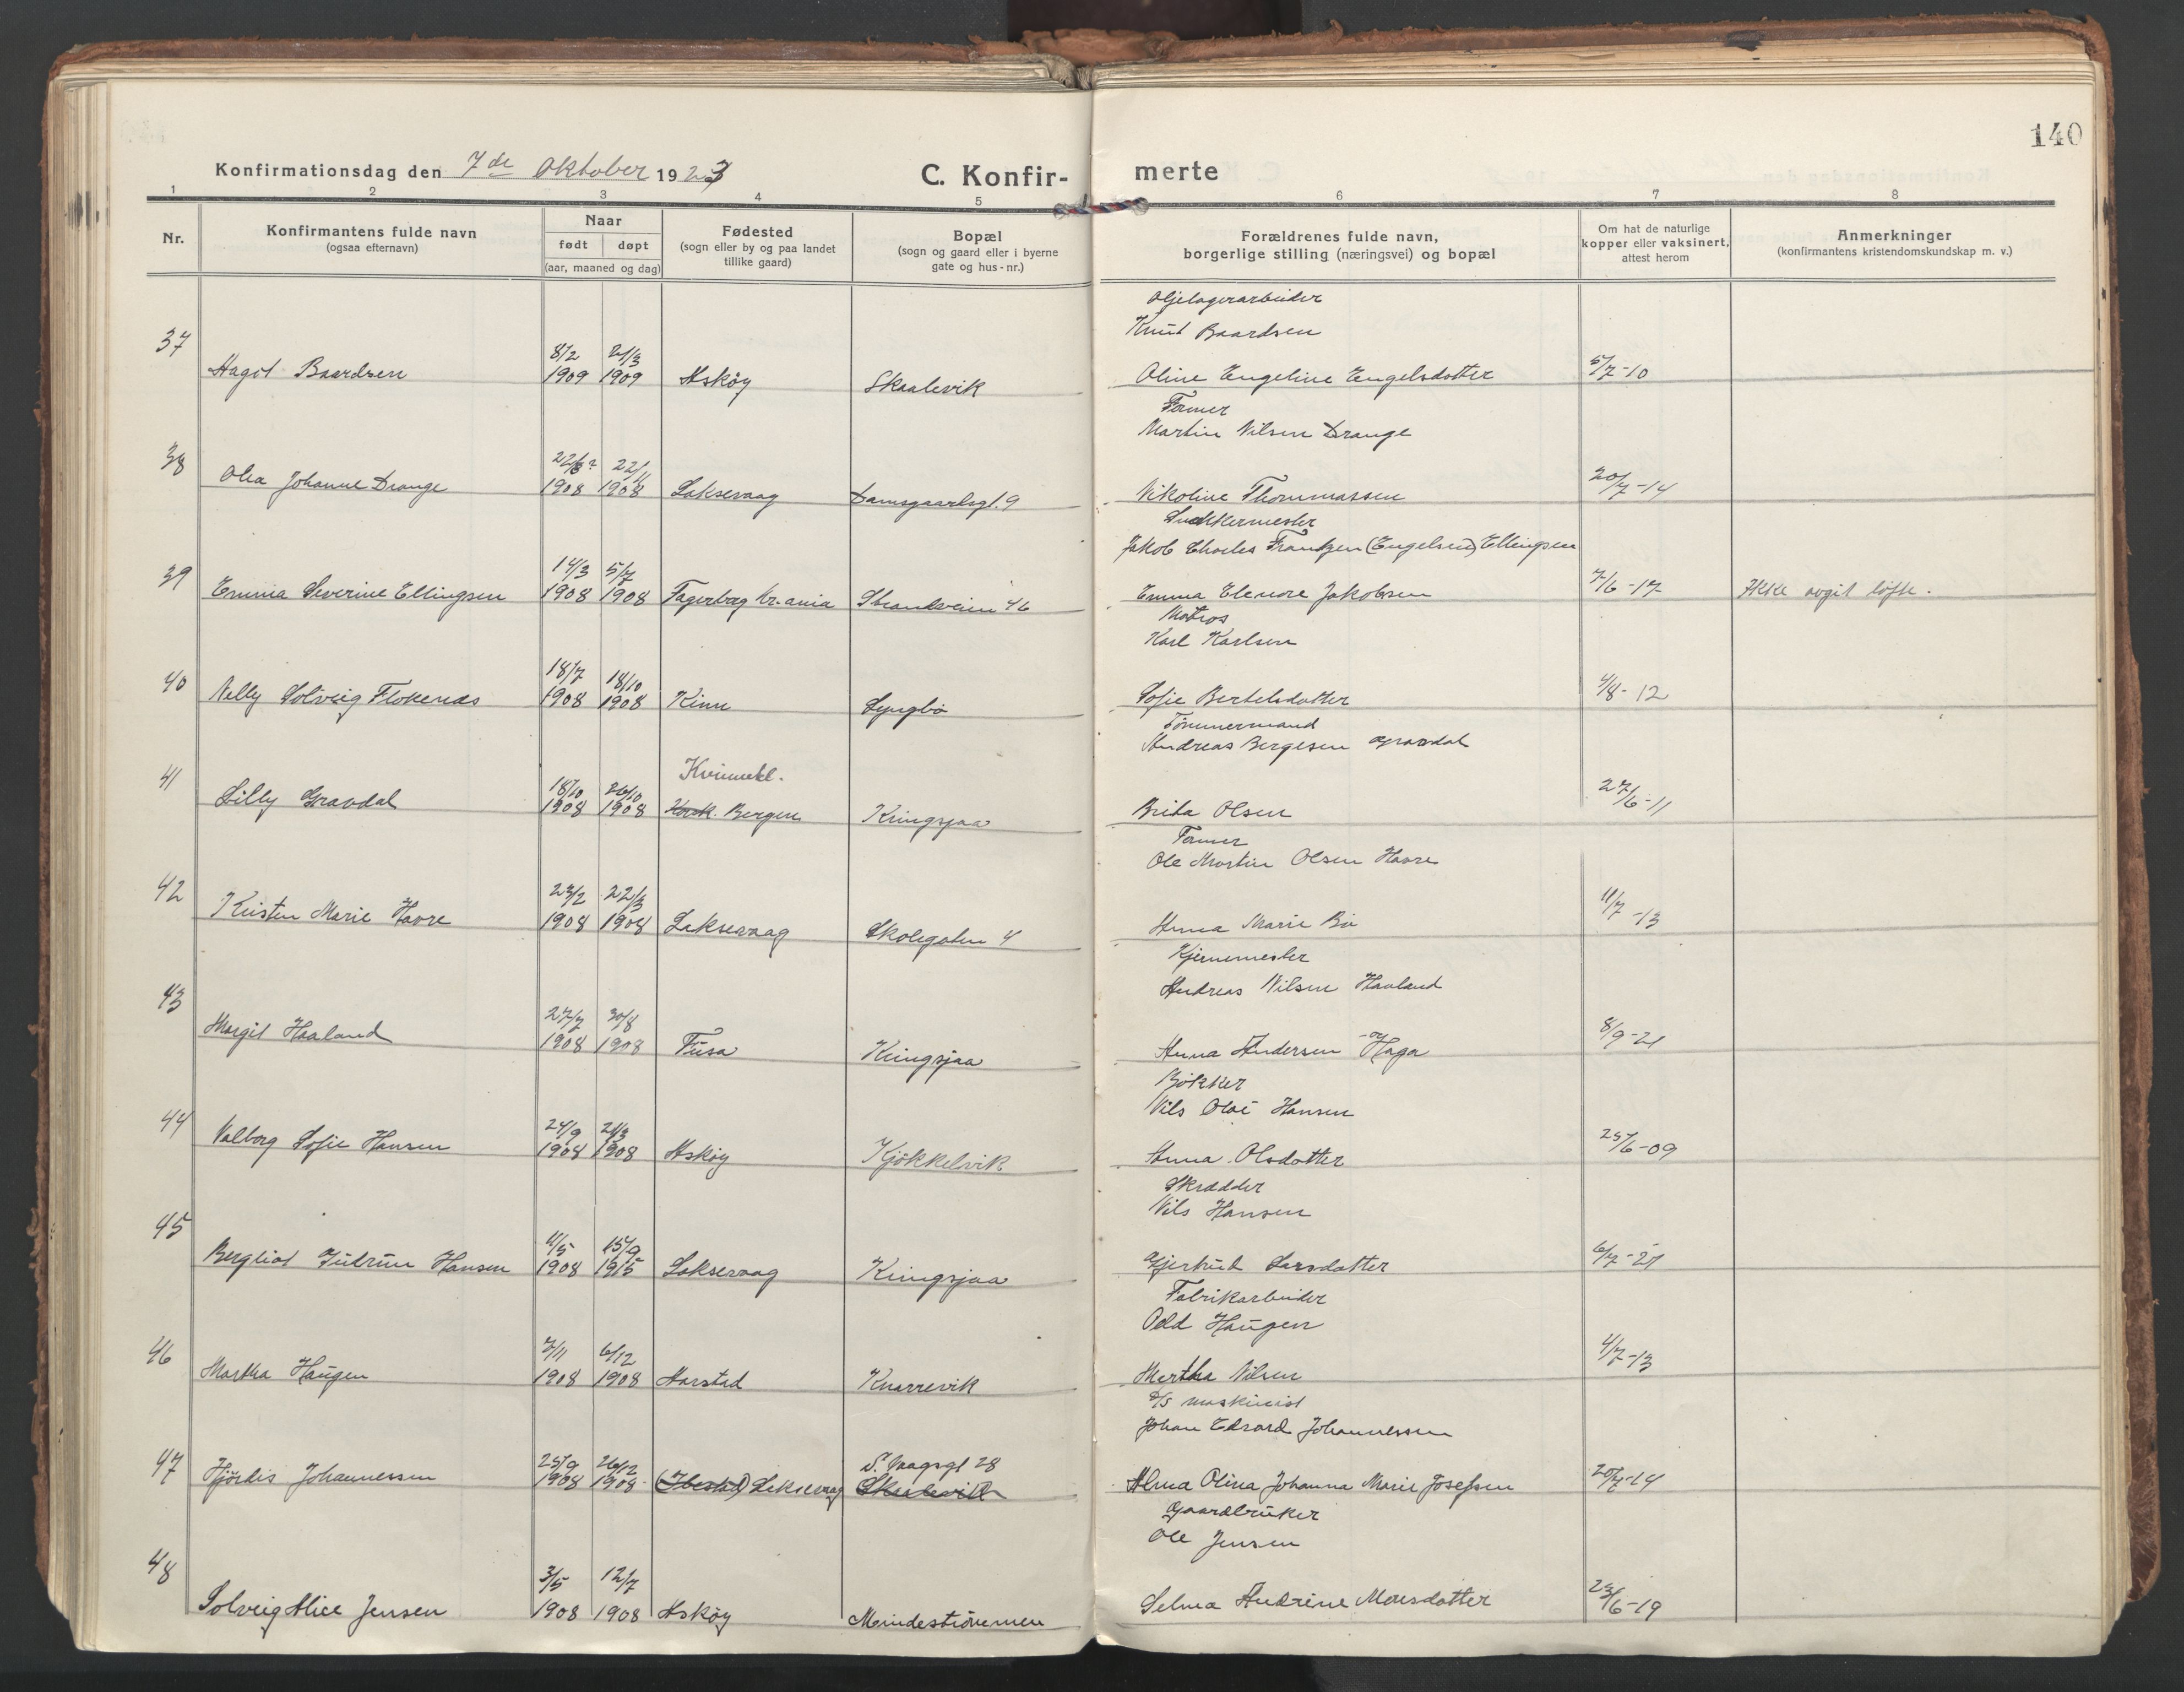 140
Konfirmationsdag den 7de Oktober 1923
C. Konfir-
merte
1 2 3 4 5 6 7 8
Nr.
Konfirmantens fulde navn
(ogsaa efternavn)
Naar
født døpt
(aar, maaned og dag)
Fødested
(sogn eller by og paa landet
tillike gaard)
Bopæl
(sogn og gaard eller i byerne
gate og hus-nr.)
Forældrenes fulde navn,
borgerlige stilling (næringsvei) og bopæl
Om hat de naturlige
kopper eller vaksinert,
attest herom
Anmerkninger
(konfirmantens kristendomskundskap m. v.)
Oljelagerarbeider
Knut Baardsen
37 Hagot Baardsen 8/2 1909 21/3 1909 Askøy Skaalevik Oline Engeline Engelsdotter 5/7-10
Former
Martin Nilsen Drange
38 Olea Johanne Drange 22/8? 1908 22/11 1908 Laksevaag Damsgaardsgt. 9 Nikoline Thommassen 20/7-14
Snekkermester
Jakob Charles Frantzen (Engelsen) Ellingsen
39 Emma Severine Ellingsen 14/3 1908 5/7 1908 Fagerborg Kr.ania Strandveien 46 Emma Elenore Jakobsen 7/6-17 Ikke avgit løfte.
Matros
Karl Karlsen
40 Nelly Solveig Flokenes 18/7 1908 18/10 1908 Kinn Lyngbø Sofie Bertelsdatter 4/8-12
Tømmermand
Andreas Bergesen Gravdal
41 Lilly Gravdal 18/10 1908 26/10 1908 Kvinnekl. Korsk. Bergen Kringsjaa Brita Olsen 27/6-11
Former
Ole Martin Olsen Havre
42 Kristen Marie Havre 23/2 1908 22/3 1908 Laksevaag Skolegaten 4 Anna Marie Bø 11/7-13
Kjernemester
Andreas Nilsen Haaland
43 Margit Haaland 27/7 1908 30/8 1908 Fusa Kringsjaa Anna Andersen Haga 8/9-21
Bøkker
Nils Olai Hansen
44 Valborg Sofie Hansen 24/9 1908 1908 Askøy Kjøkkelvik Anna Olsdotter 25/6-09
Skrædder
Nils Hansen
45 Bergliot Gudrun Hansen 11/5 1908 15/9 1915 Laksevaag Kringsjaa Gjertrud Larsdatter 6/7-21
Fabrikarbeider
Odd Haugen
46 Martha Haugen 7/11 1908 6/12 1908 Harstad Knarrevik Martha Nilsen 4/7-13
D/S maskinist
Johan Edvard Johannessen
47 Hjørdis Johannessen 25/9 1908 26/12 1908 (Ibestad) Laksevaag S. Vaagsgt 28 Skaalevik Alma Olina Johanna Marie Josefsen 20/7-14
Gaardbruker
Ole Jensen
48 Solveig Alice Jensen 3/5 1908 12/7 1908 Askøy Mindestrømmen Selma Andrine Monsdatter 23/6-19